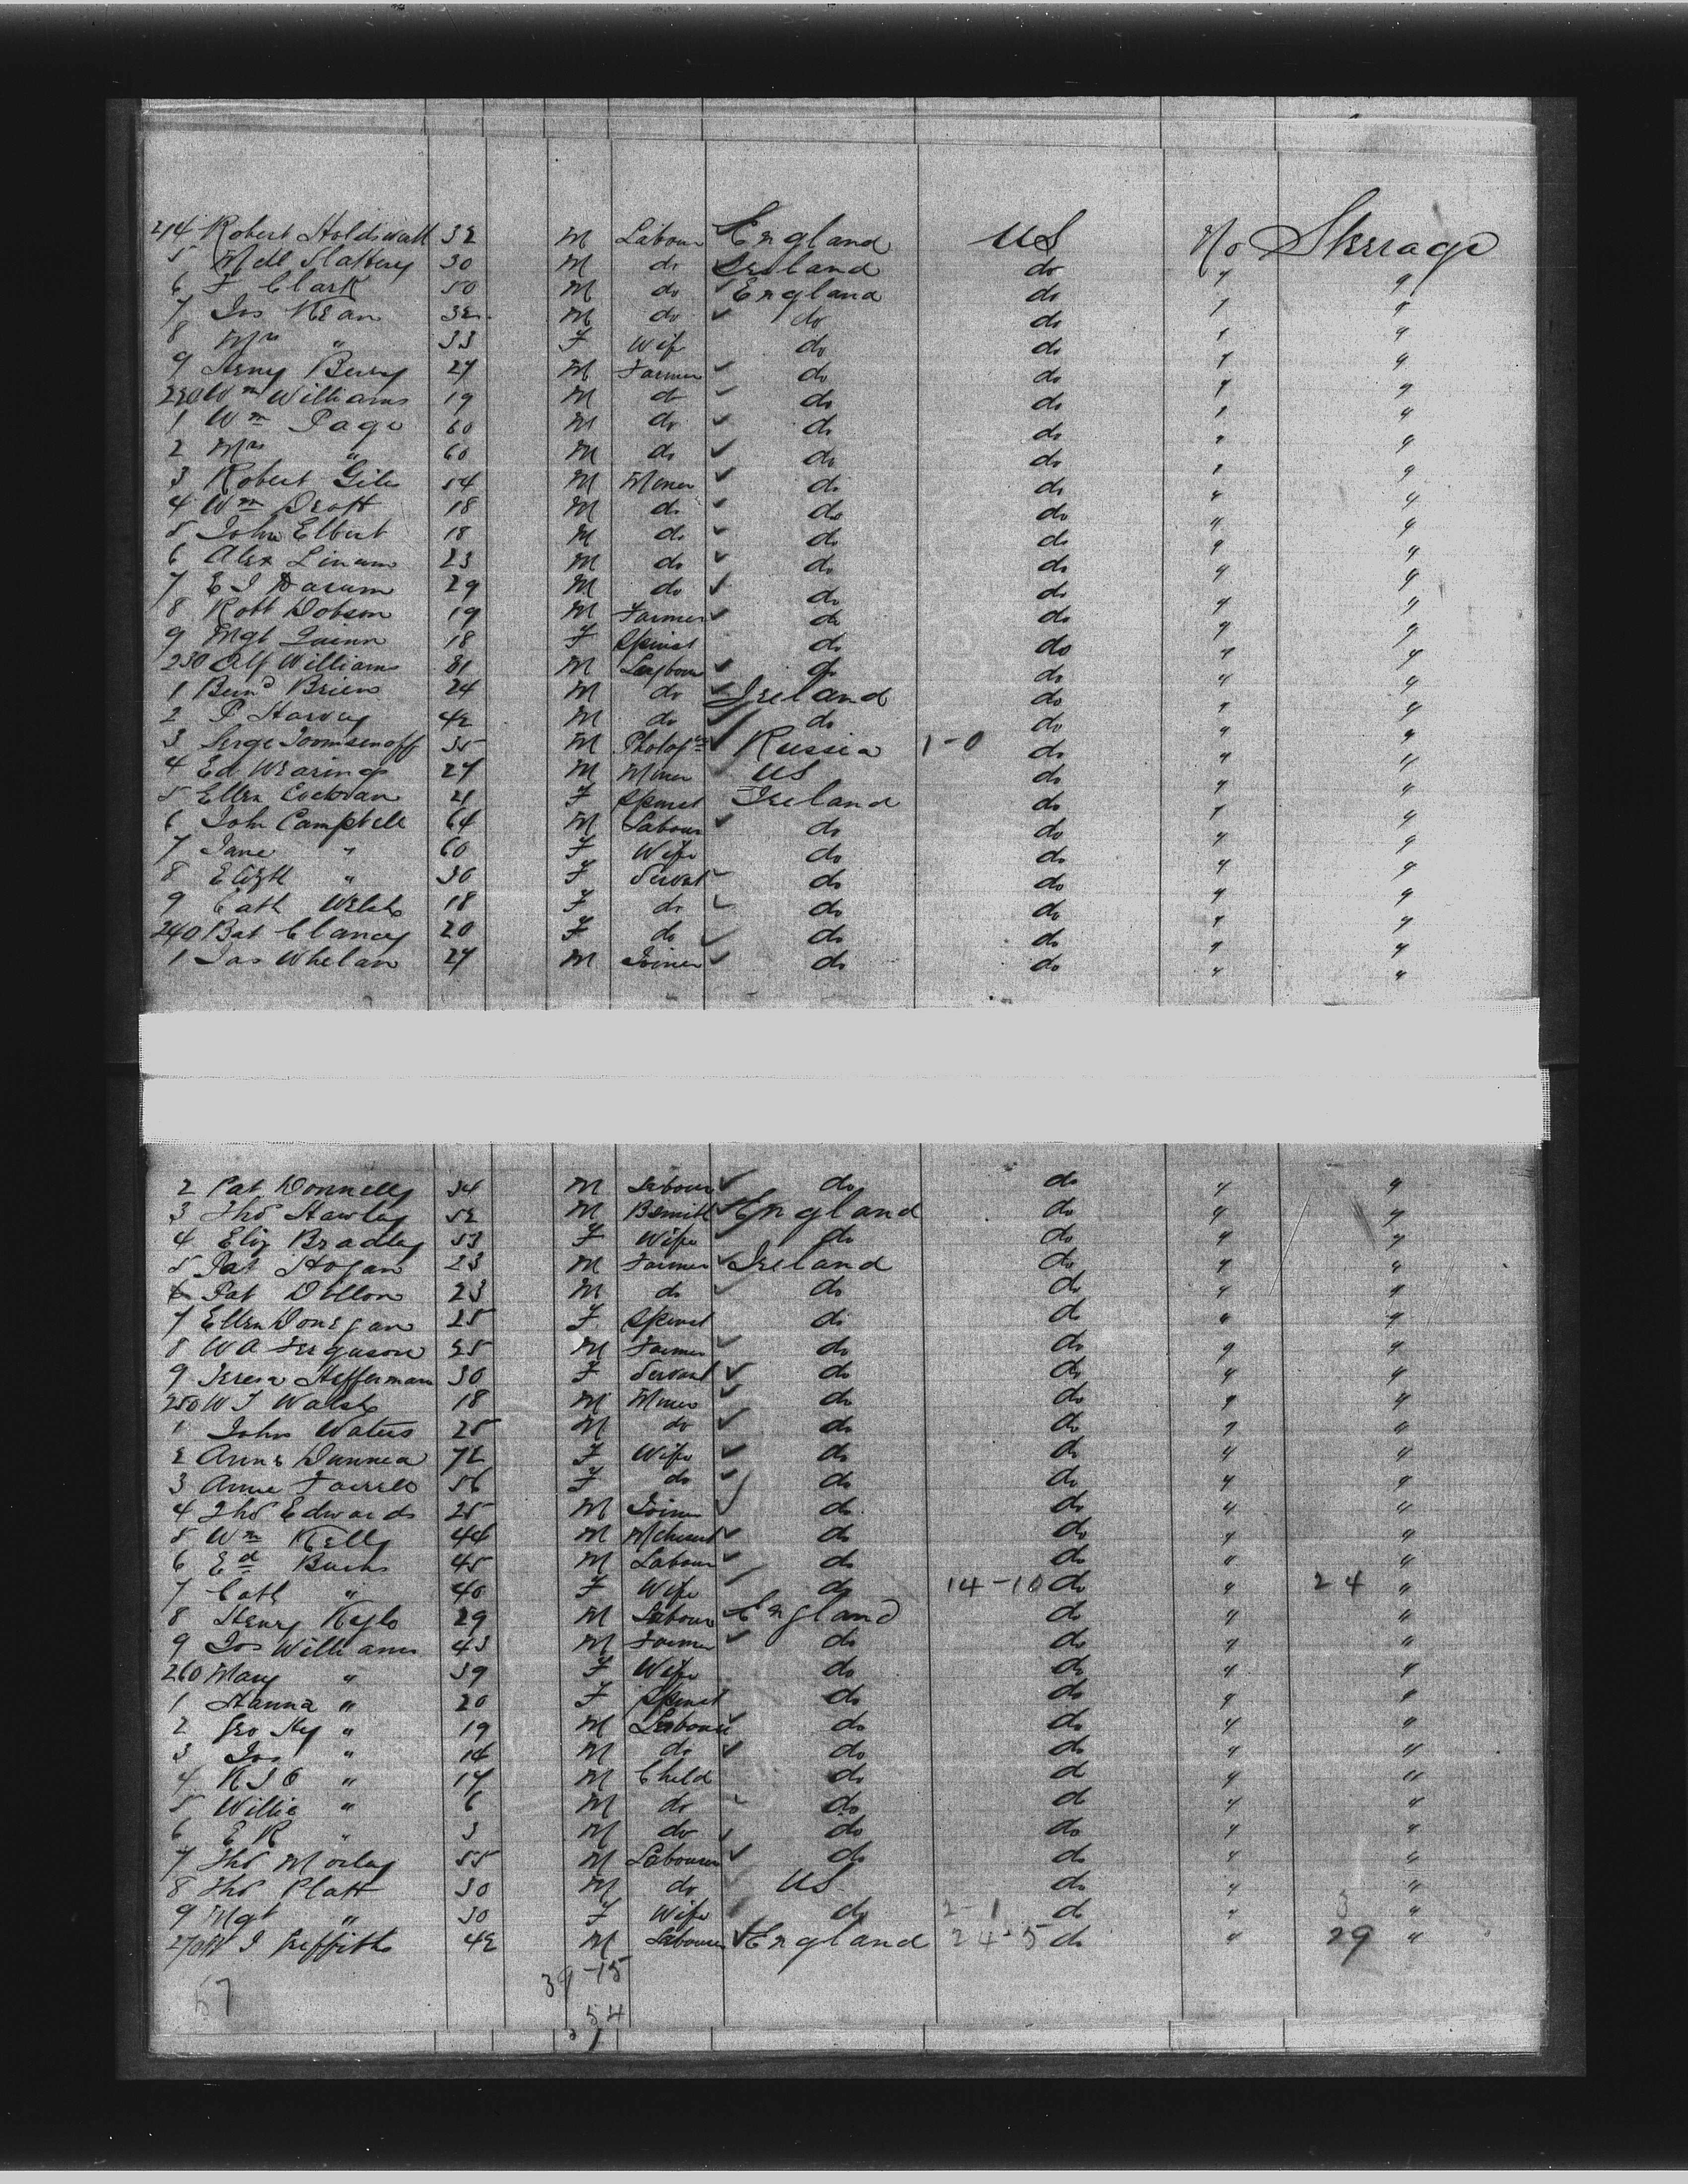 214 Robert Holdswatt 32 M Labour England US No Sterrage
5 Mcll Slattery 30 M do Ireland do " "
6 F Clark 50 M do England do " "
7 Jos Kean 32 M do do do " "
8 Mrs " 33 F Wif do do " "
9 Henry Berry 27 M Farmer do do " "
220 Wm Williams 19 M do do do " "
1 Wm Page 60 M do do do " "
2 Mrs " 60 M do do do " "
3 Robert Giles 54 M Miner do do " "
4 Wm Drott 18 M do do do " "
5 John Elbert 18 M do do do " "
6 Alex Linam 23 M do do do " "
7 E J 29 M do do do " "
8 Robt Dobson 19 M Farmer do do " "
9 Mgt Quinn 18 F Spinst do do " "
230 Alf Williams M Labour do do " "
1 Bernd Brien 24 M do Ireland do " "
2 P Harvey 42 M do do do " "
3 Serge 35 M Russia 1-0 do " "
4 Ed Wearing 27 M Miner US do " "
5 Ellen Cochran 21 F Spinst Ireland do " "
6 John Campbell 64 M Labour do do " "
7 Jane " 60 F Wife do do " "
8 Elizth " 30 F Servat do do " "
9 Cath Welsh 18 F do do do " "
240 Bat Clancy 20 F do do do " "
1 Jas Whelan 27 M Joiner do do " "
2 Pat Donnelly 34 M Labour do do " "
3 Thos Hawley 52 M Bsmith England do " "
4 Eliz Bradley 53 F Wife do do " "
5 Pat Hogan 23 M Farmer Ireland do " "
6 Pat Dillon 23 M do do do " "
7 Ellen Donegan 25 F Spinst do do " "
8 W A Ferguson 25 M Farmer do do " "
9 Teresa Heffernan 30 F Servant do do " "
250 W J Walsh 18 M Miner do do " "
1 John Waters 25 M do do do " "
2 Anne Dunnea 72 F Wife do do " "
3 Anne Farrell 56 F do do do " "
4 Thos Edwards 25 M Joiner do do " "
5 Wm Kelly 44 M Mchant do do " "
6 Ed Burke 45 M Labour do do " "
7 Cath " 40 F Wife do 14-10 do " 24 "
8 Henry 29 M Labour England do " "
9 Jos Williams 43 M Farmer do do " "
260 Mary " 39 F Wife do do " "
1 Hanna " 20 F Spinst do do " "
2 Geo Hy " 19 M Labour do do " "
3 Jos " 14 M do do do " "
4 R J O " 17 M Child do d " "
5 Willie " 6 M do do d " "
6 E R " 3 M do do do " "
7 Thos Morley 55 M Labourer do do " "
8 Thos Platt 30 M do US do " "
9 Mgt " 30 F Wife do 2-1 d " 5 "
270 W J Griffiths 42 M Labourer England 24-5 do " 29 "
39-15
57
54